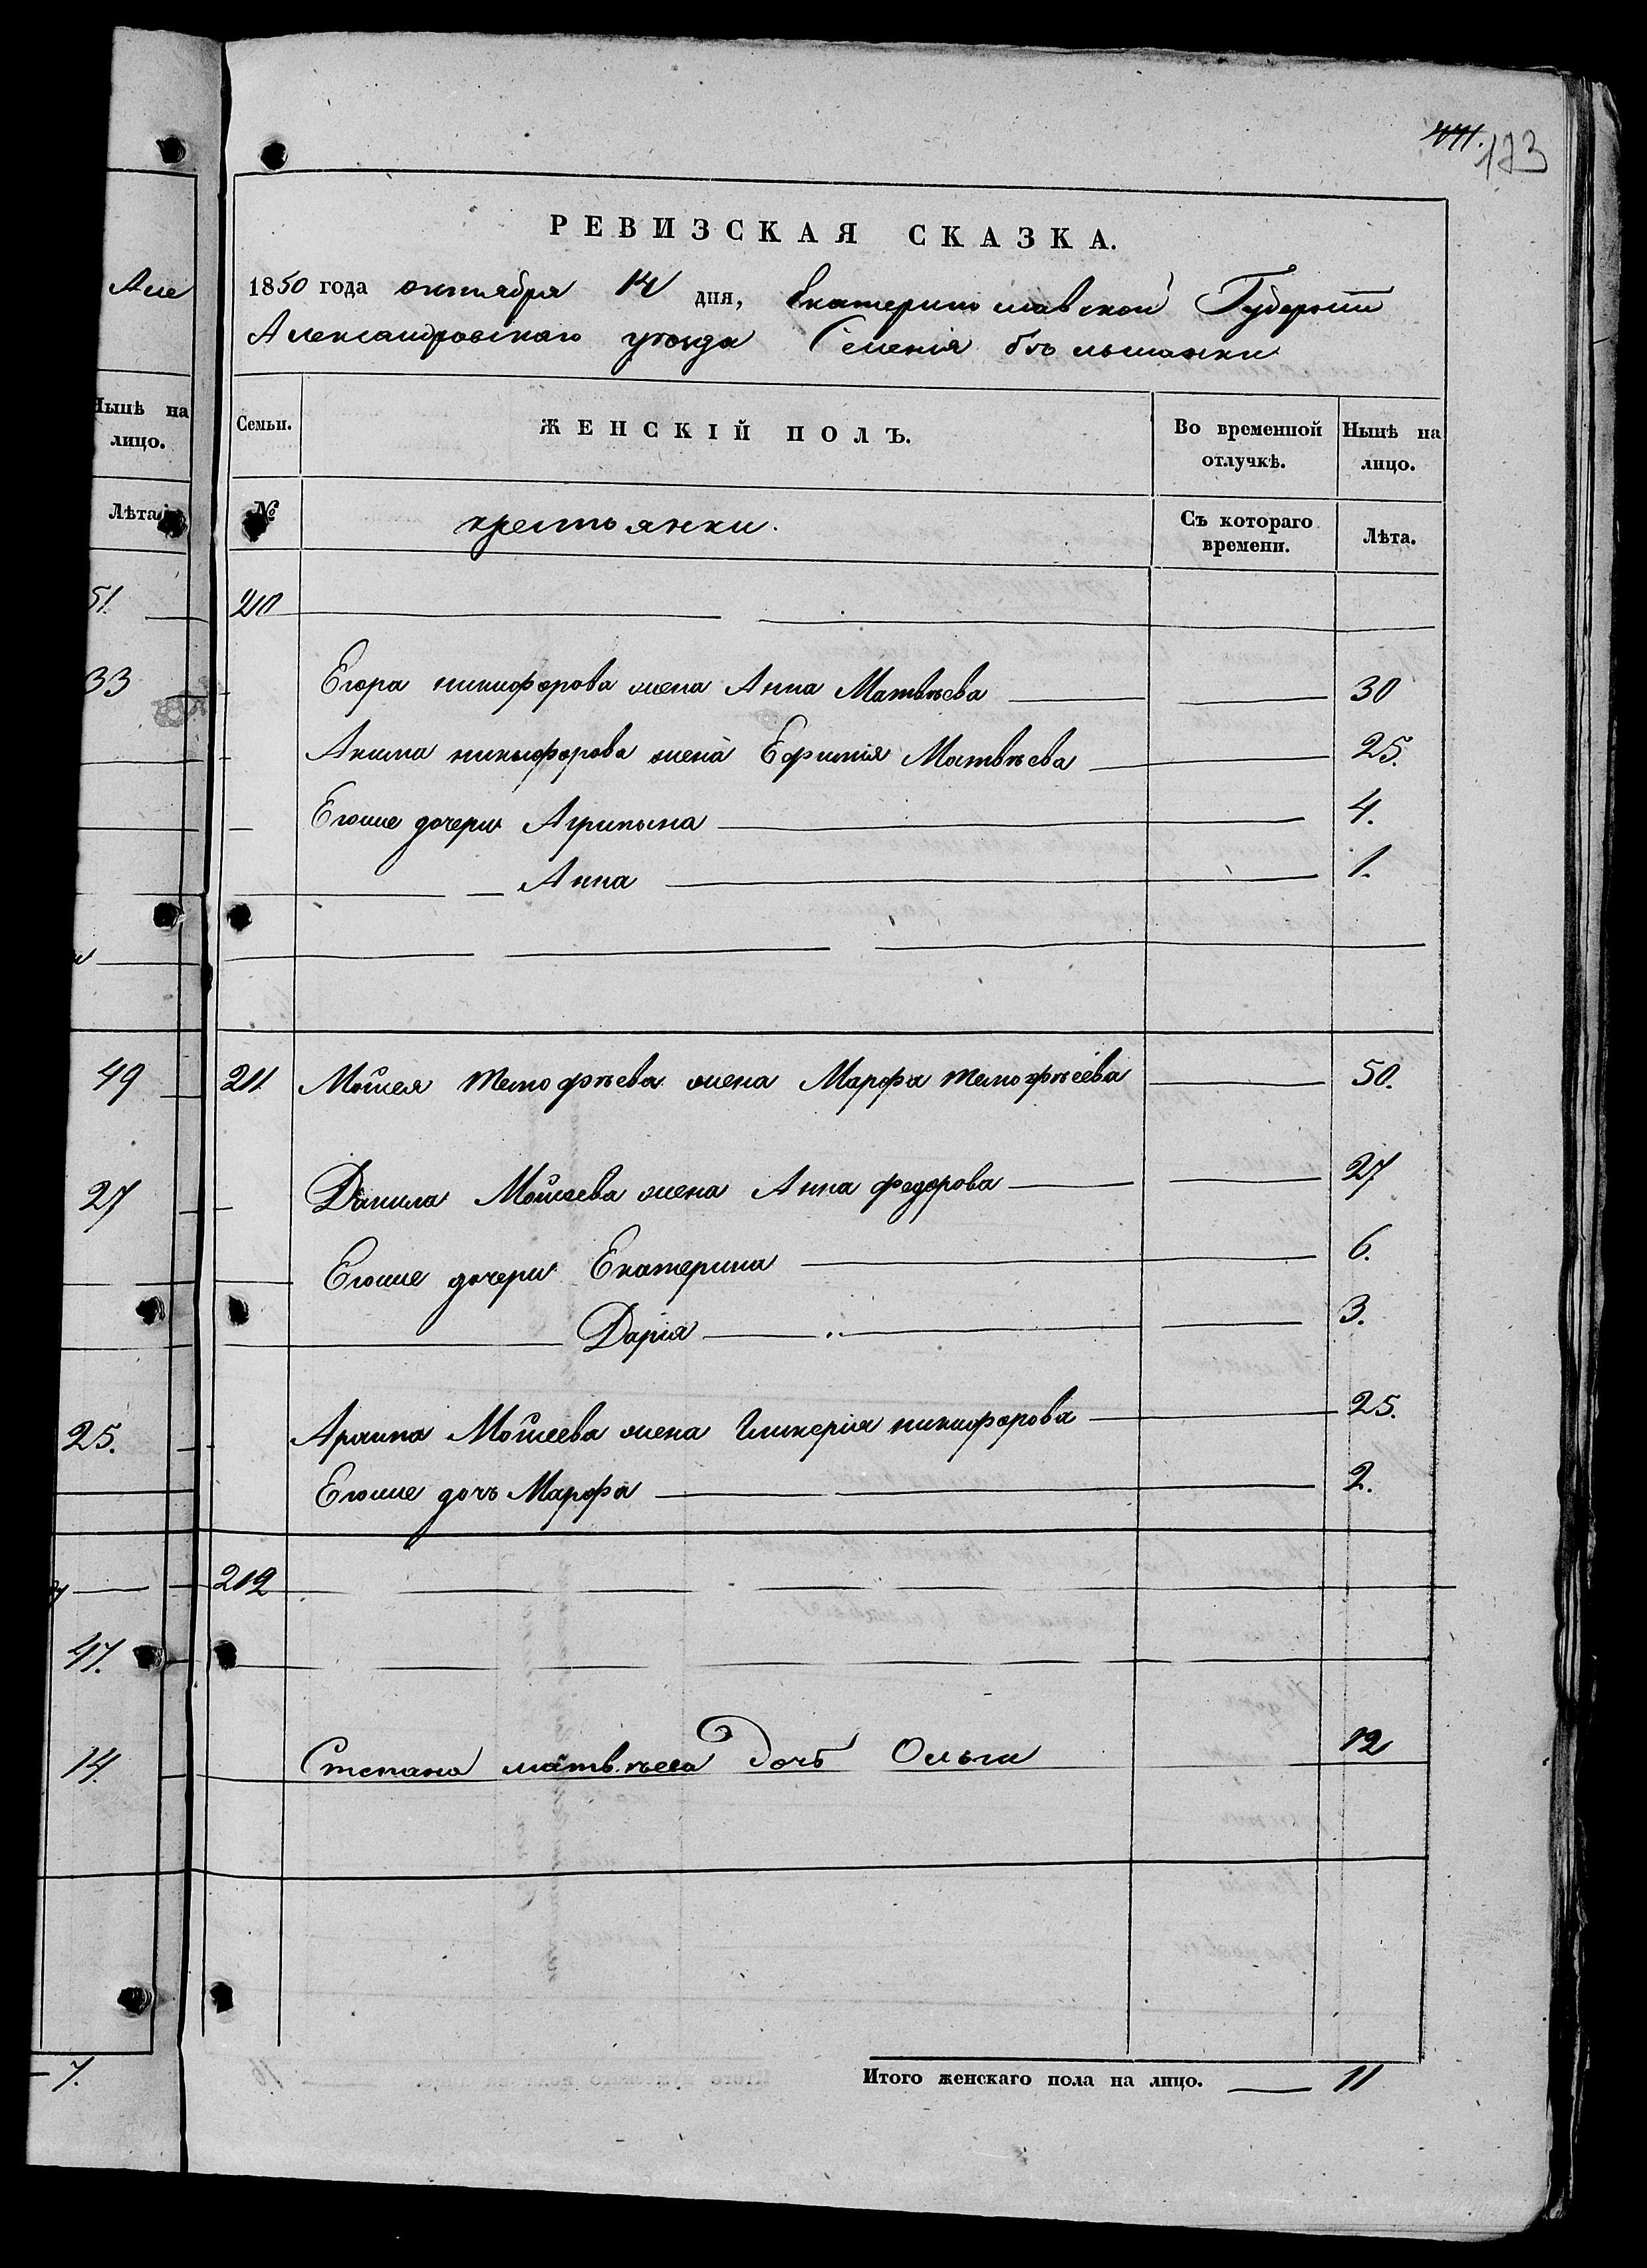 171. 173
РЕВИЗСКАЯ СКАЗКА.
Але
1850 года октября 14 дня, Екатеринославской Губерніи
Александровскаго уѣзда Селенія Бѣльманки
Нынѣ на лицо.
Семьи. ЖЕНСКІЙ ПОЛЪ. Во временной отлучкѣ. Нынѣ на лицо.
Лѣта.
№ крестьянки. Съ котораго времени. Лѣта.
51. 210
33 Егора никифорова жена Анна Матвѣева 30
Акима никифорова жена Ефимія Матвѣева 25.
Егоже дочери Агрипына 4.
Анна 1.
49 211 Мойсея темофѣева жена Марфа темофѣева 50.
27 Данила Мойсеева жена Анна федорова 27
Егоже дочери Екатерина 6.
Дарія 3.
25. Архипа Мойсеева жена Гликерія никифорова 25.
Егоже дочь Марфа 2.
212
47.
14. Степана матвѣева дочь Ольга 12
7. Итого женскаго пола на лицо. 11